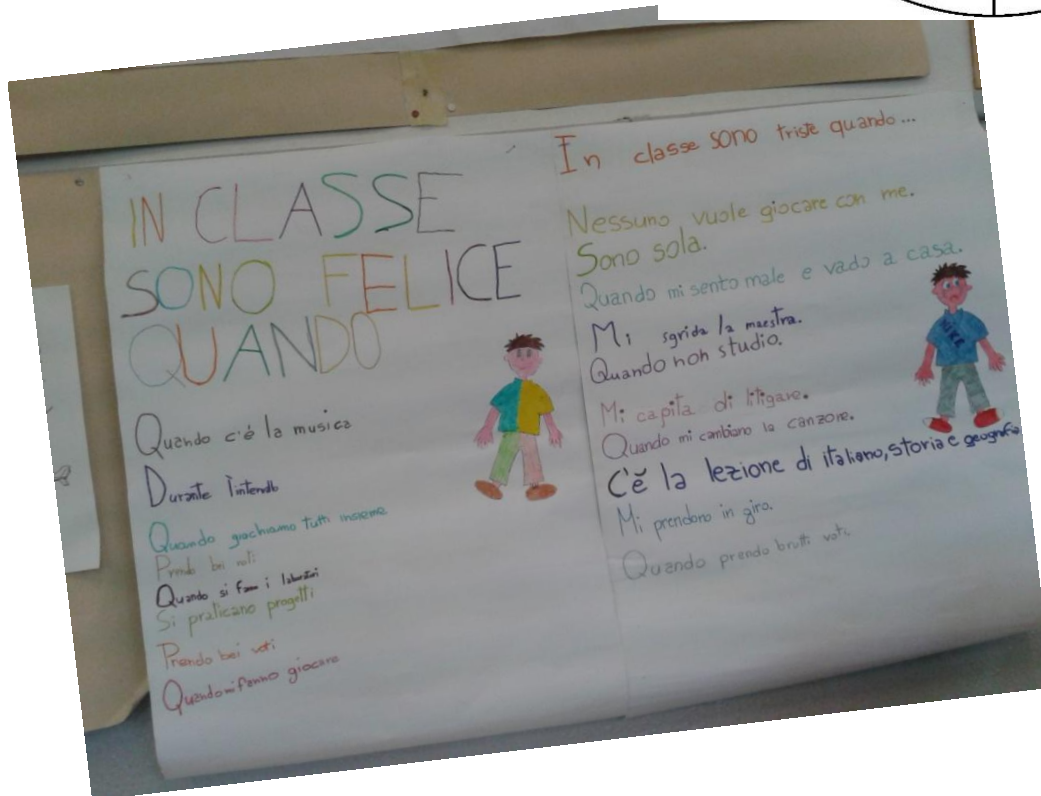 IN CLASSE
SONO FELICE
QUANDO
Quando c'é la musica
Durante
Quando giochiamo tutti insieme
Prendo bei voti
Quando si fanno i laboratori
Si praticano progetti
Prendo bei voti
Quando mi fanno giocare
In classe sono triste quando...
Nessuno vuole giocare con me.
Sono sola.
Quando mi sento male e vado a casa.
Mi sgrida la maestra.
Quando non studio.
Mi capita di litigare.
Quando mi cambiano la canzone.
C'è la lezione di italiano, storia e geografia
Mi prendono in giro.
Quando prendo brutti voti.
NIKE